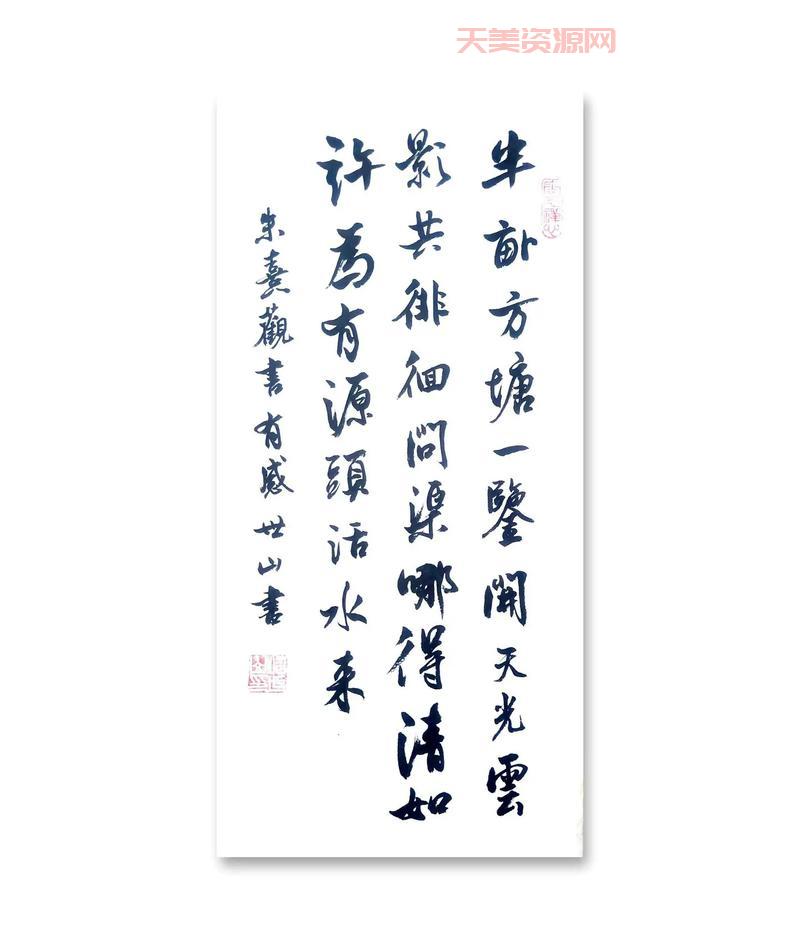 天美资源网
半畝方塘一鑒開天光雲
影共徘徊問渠哪得清如
許為有源頭活水来
朱熹觀書有感世山書